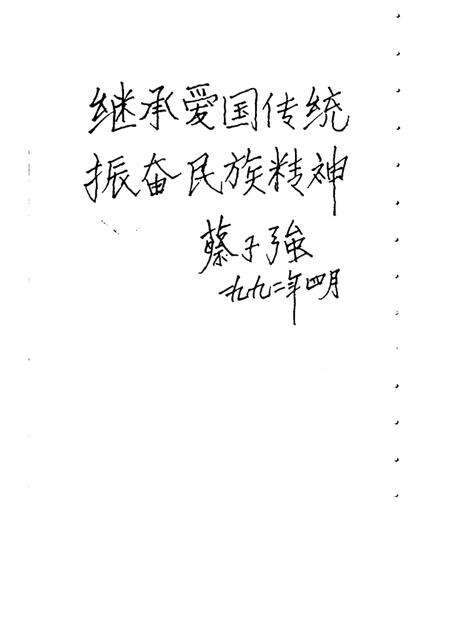 继承爱国传统
振奋民族精神
蔡子强
一九九二年四月